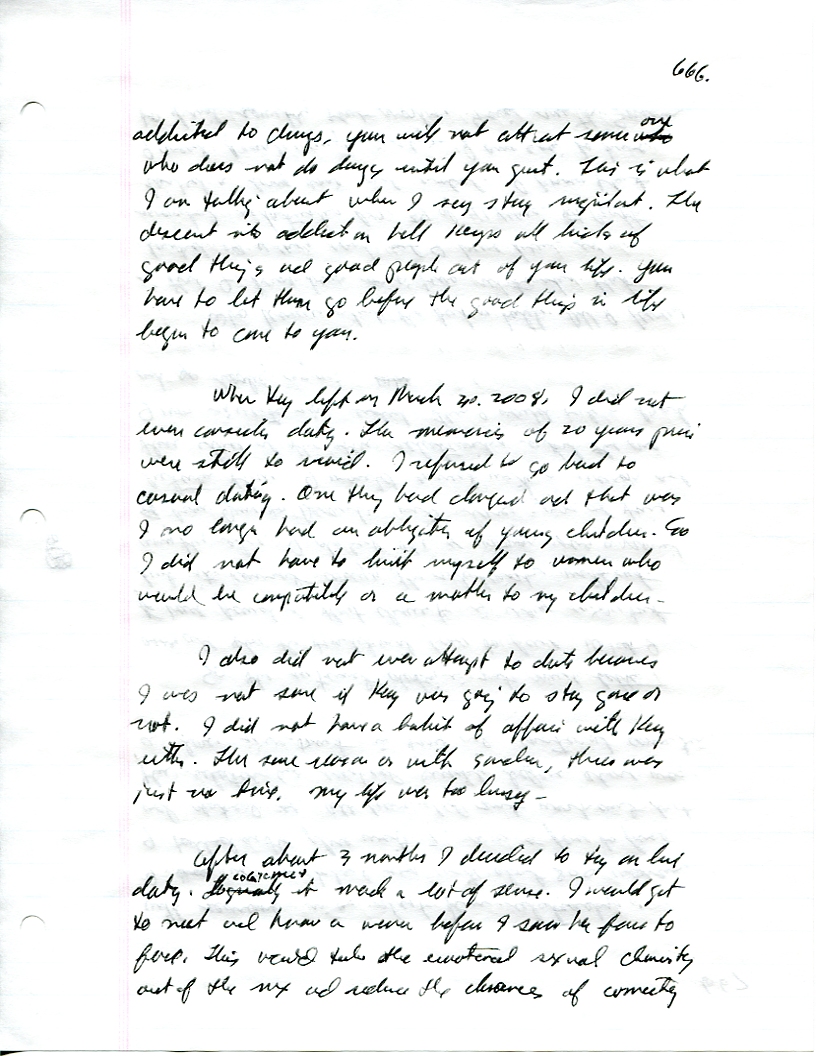 666.
addicted to drugs, you will not attract someone
who does not do drugs until you quit. This is what
I am talking about when I say stay vigilant. The
descent into addiction hell keeps all kinds of
good things and good people out of your life. You
have to let them go before the good things in life
begin to come to you.
When Kay left on March 20, 2008, I did not
even consider dating. The memories of 20 years prior
were still to vivid. I refused to go back to
casual dating. One thing had changed and that was
I no longer had an obligation of young children. So
I did not have to limit myself to women who
would be compatible or a mother to my children.
I also did not even attempt to date because
I was not sure if Kay was going to stay gone or
not. I did not have a habit of affairs with Kay
either. The same reason as with, there was
just no time. My life was too busy.
After about 3 months I decided to try on line
dating. it made a lot of sense. I would get
to meet and know a woman before I saw her face to
face. This would take the emotional sexual chemistry
out of the mix and reduce the chances of connecting